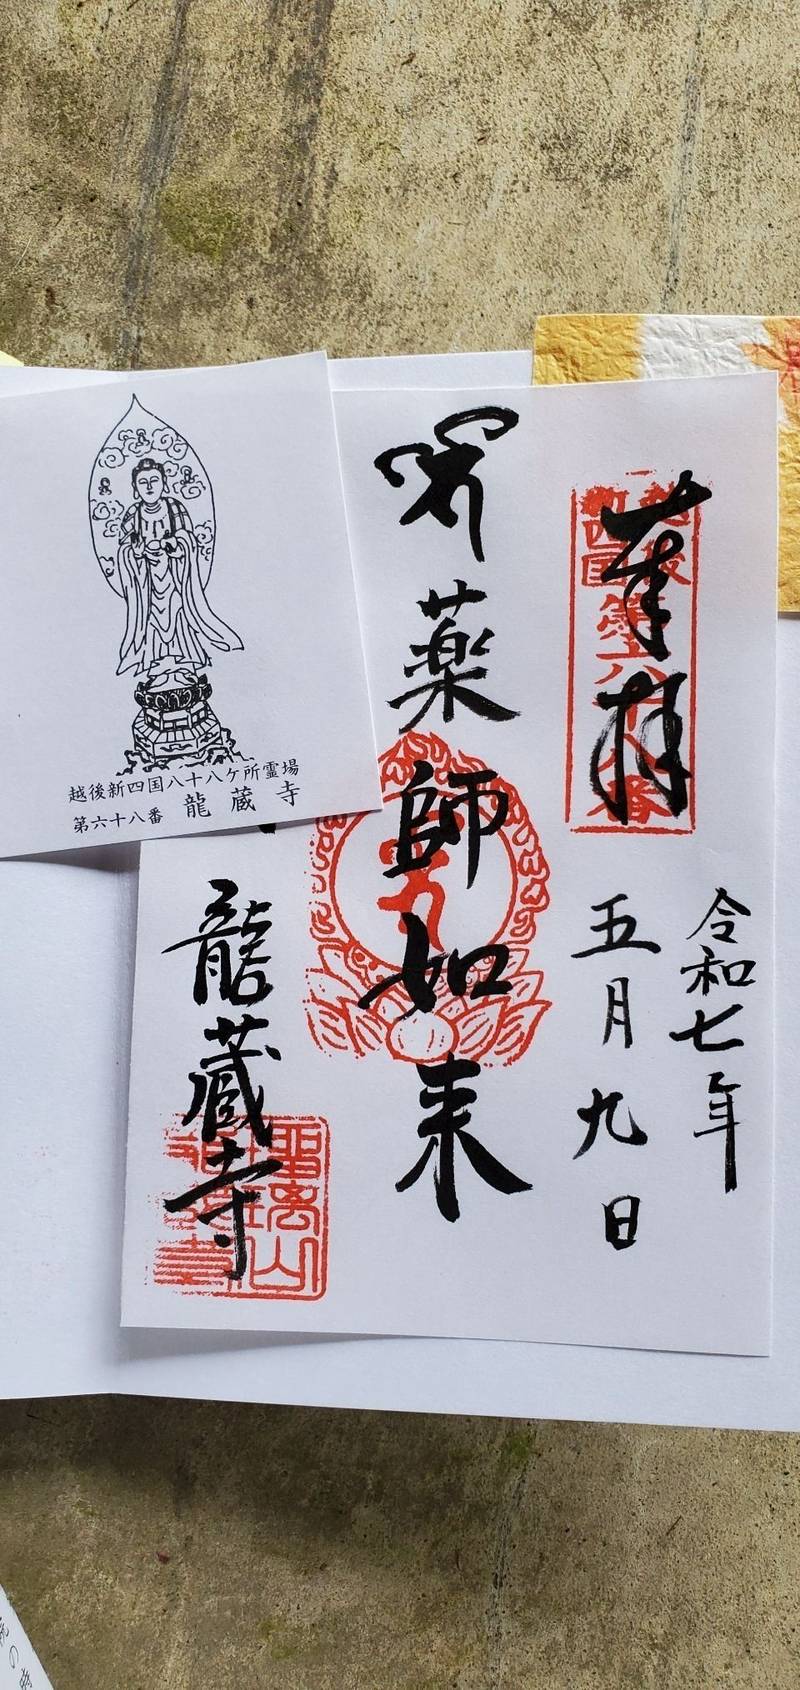 奉拝
令和七年
五月九日
薬師如来
龍蔵寺
越後
新四国
第六十八番
瑠璃山
越後新四国八十八ケ所霊場
第六十八番 龍蔵寺